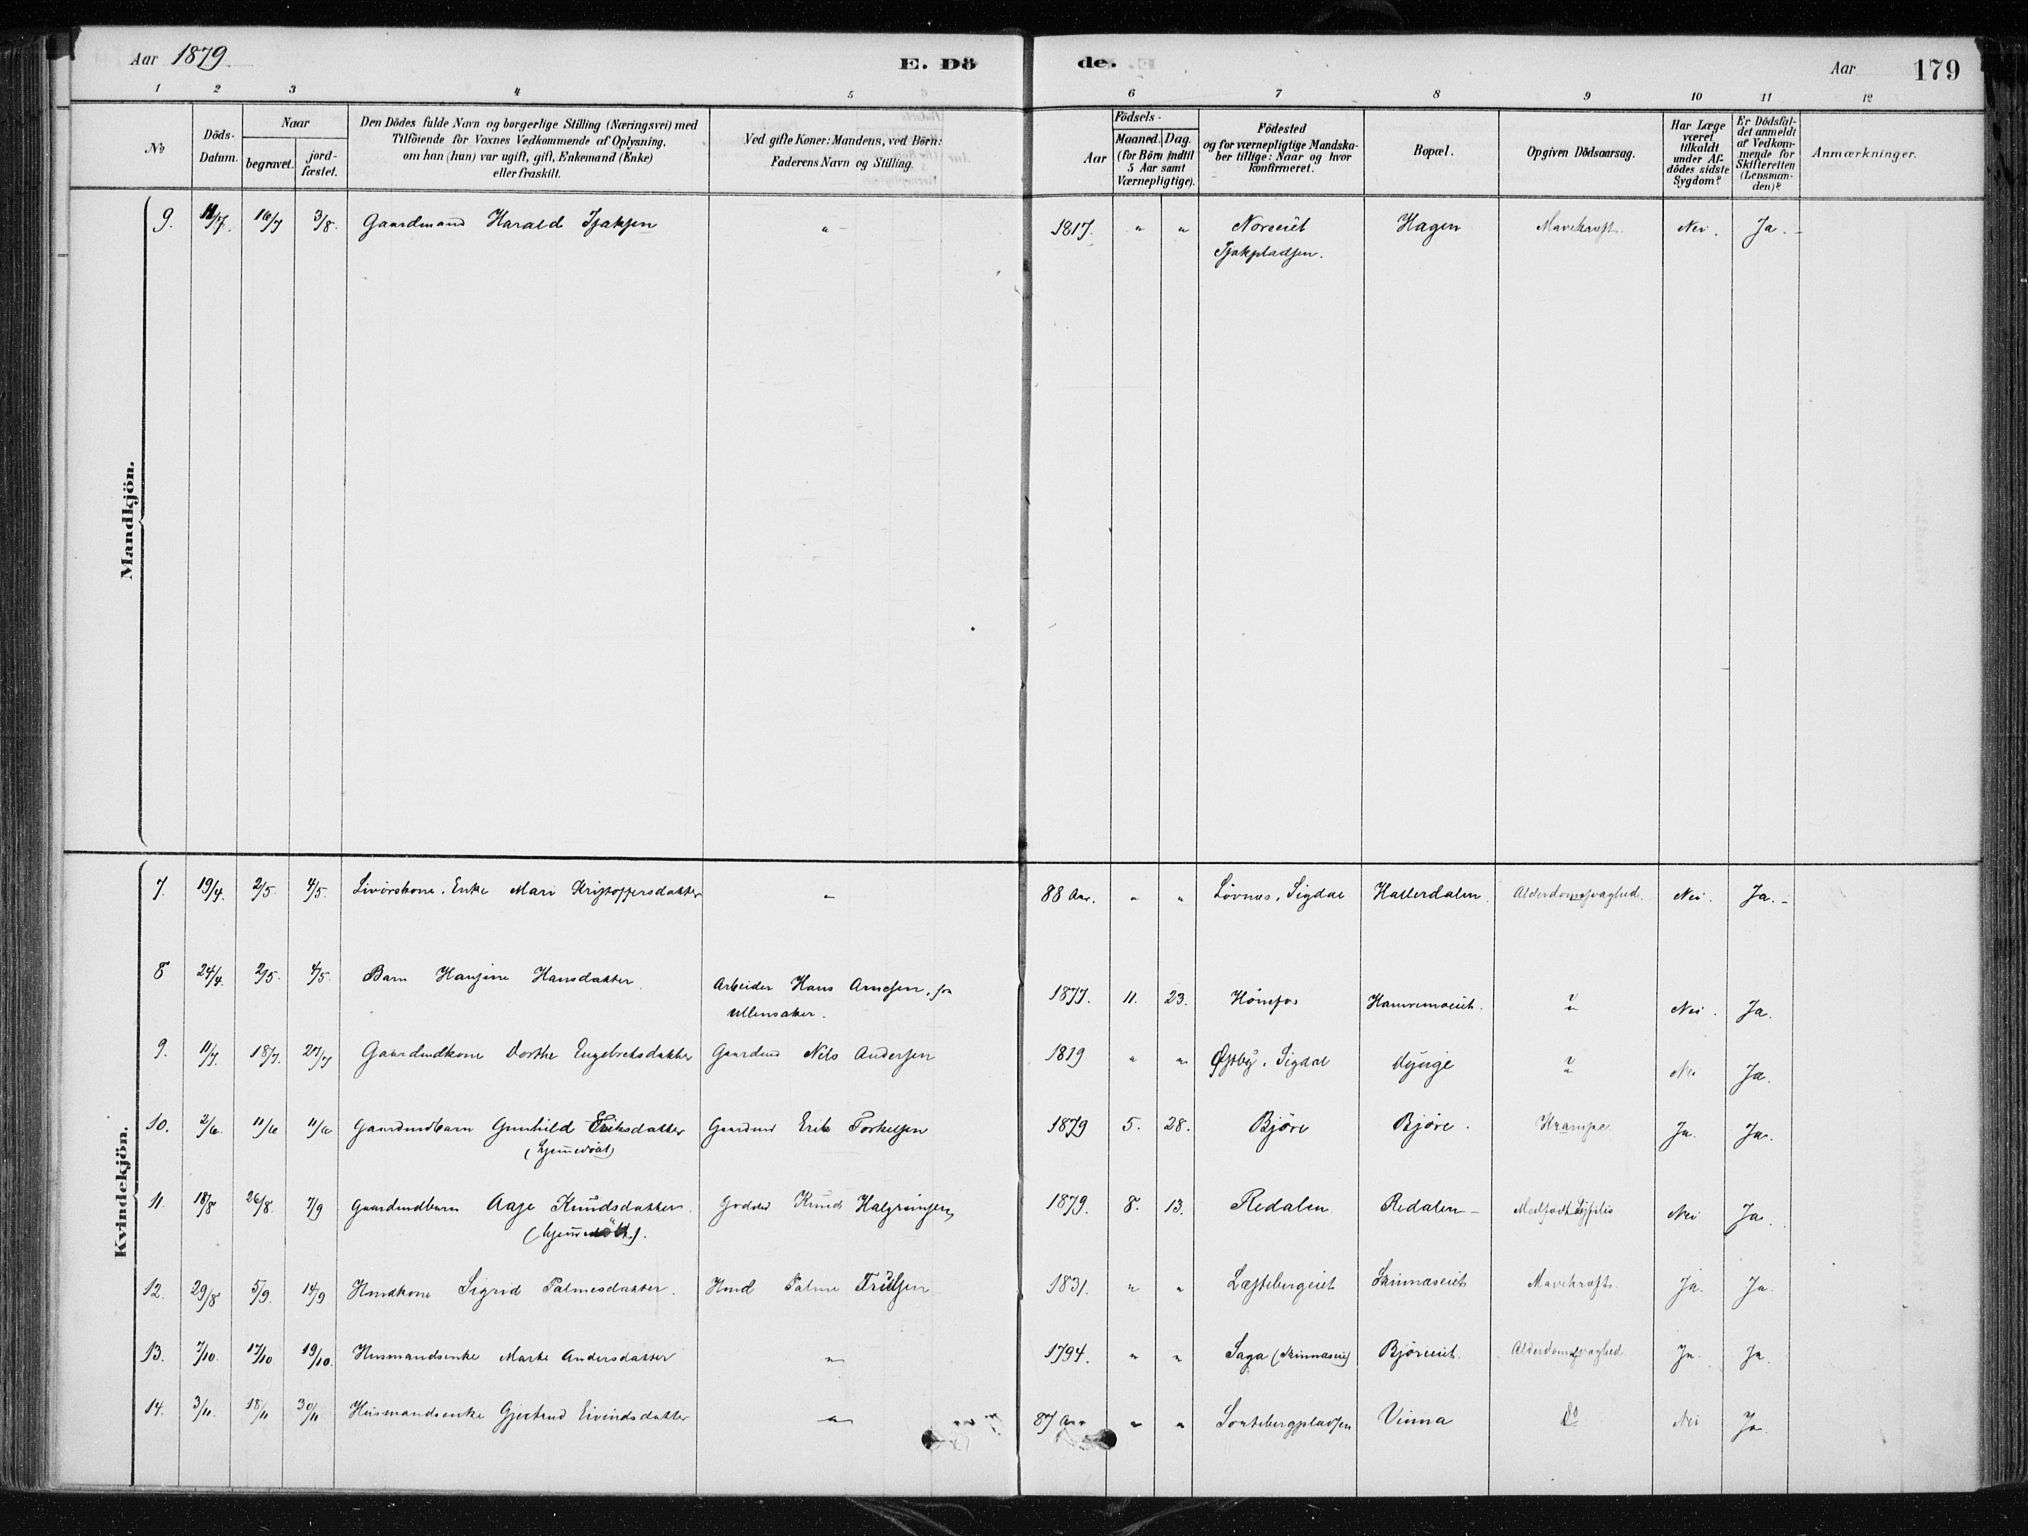 Aar 1879. E. Dö de. Aar 179
1 2 3 4 5 6 7 8 9 10 11 12
No
Döds-Datum.
Naar
begravet.
jord-fæstet.
Den Dödes fulde Navn og borgerlige Stilling (Næringsvei) med
Tilföiende for Voxnes Vedkommende af Oplysning,
om han (hun) var ugift, gift, Enkemand (Enke)
eller fraskilt.
Ved gifte Koner: Mandens, ved Börn:
Faderens Navn og Stilling.
Födsels-
Aar
Maaned. Dag.
(for Börn indtil
5 Aar samt
Værnepligtige).
Födested
og for værnepligtige Mandska-
ber tillige: Naar og hvor
konfirmeret.
Bopæl.
Opgiven Dödsaarsag.
Har Læge
været
tilkaldt
under Af-
dödes sidste
Sygdom?
Er Dödsfal-
det anmeldt
af Vedkom-
mende for
Skifteretten
(Lensman-
den)?
Anmærkninger.
Mandkjön.
9. 11/7. 16/7 3/8. Gaardmand Harald Isaksen " 1817. " " Noreeiet Hagen Mavekræft. Nei. Ja.
Isakpladsen.
Kvindekjön.
7. 19/4. 2/5. 4/5. Livörskone. Enke Mari Kristoffersdatter " 88 Aar. " " Lövnæs, Sigdal Hallerdalen. Alderdomssvaghed. Nei. Ja.
8 24/4. 2/5. 4/5. Barn Hansine Hansdatter Arbeider Hans Arnesen, fra 1877. 11. 23. Hönefos ? Nei. Ja.
Ullensaker.
9. 11/7. 18/7. 27/7 Gaardmdkone Dorthe Engebretsdatter Gaardmd Nils Andersen 1819 " " Østby, Sigdal ? Nei Ja.
10. 2/6. 11/6 11/6 Gaardmdbarn Gunhild Eriksdatter Gaardmd Erik Torkelsen 1879 5. 28. Björe Björe. Krampe. Ja. Ja.
(hjemmedöbt)
11. 18/8 26/8. 7/9 Gaardmdbarn Aase Knudsdatter. Knud Halgrimsen 1879. 8. 13. Redalen Redalen Medfödt Syfilis Nei Ja.
(hjemmedöbt).
12. 29/8 5/9. 14/9 Hmdkone Sigrid Palmesdatter. Hmd Palme Trulsen 1831. " " Læstebergeiet Skinnæseiet Mavekræft. Ja. Ja.
13. 7/10. 17/10 19/10. Husmandsenke Marte Andersdatter " 1794. " " Saga (Skinnæseiet) Björeeiet. Alderdomssvaghed. Ja. Ja.
14. 3/11. 18/11 30/11 Husmandsenke Gjertrud Eivindsdatter " 87 Aar " " Sortebergpladsen Vinna Do Nei Ja.